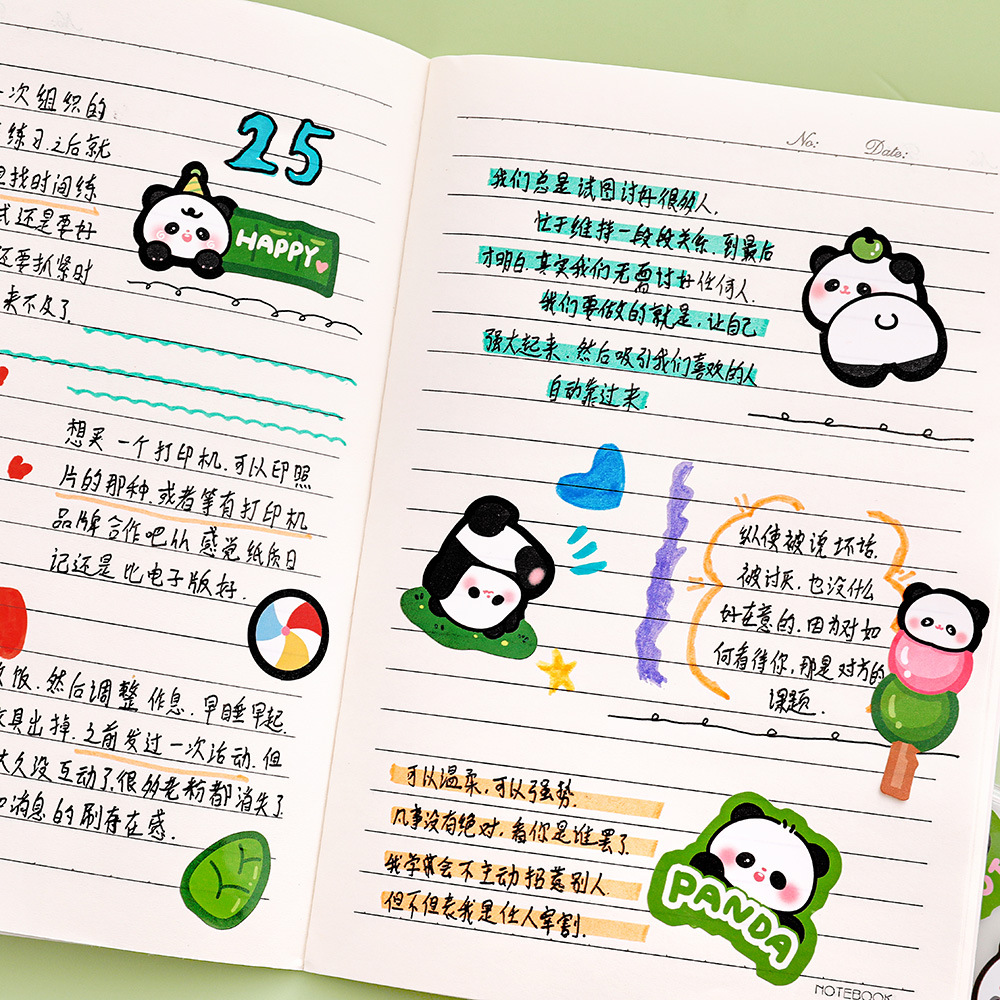 次组织的
练习.之后就
找时间练
试还是要好
还要抓紧时
来不及了.
25
HAPPY
想买一个打印机.可以印照
片的那种.或者等有打印机
品牌合作吧从感觉纸质日
记还是比电子版好.
饭.然后调整作息.早睡早起.
具出掉.之前发过一次活动.但
太久没互动了.很多老粉都消失了
消息的刷存在感.
No: Date:
我们总是试图讨好很多人.
忙于维持一段段关系.到最后
才明白.其实我们无需讨好任何人.
我们要做的就是.让自己
强大起来.然后吸引我们喜欢的人
自动靠过来.
纵使被说坏话.
被讨厌.也没什么
好在意的.因为对如
何看待你,那是对方的
课题.
可以温柔,可以强势.
凡事没有绝对,看你是谁罢了.
我学会不主动招惹别人
但不但表我是任人宰割.
PANDA
NOTEBOOK